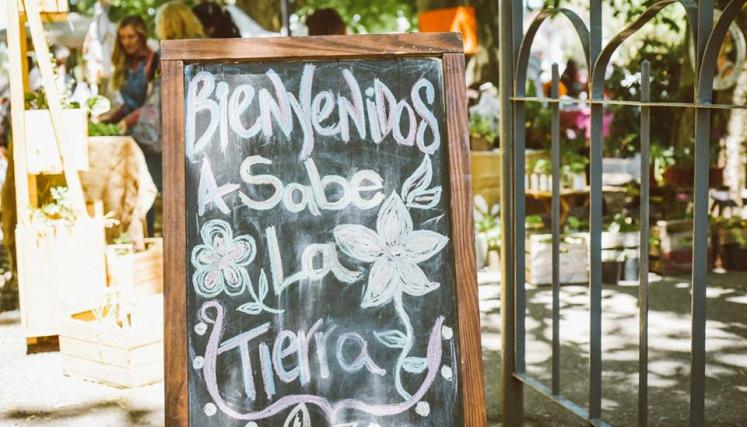 BIENVENIDOS
A Sabe
La
Tierra